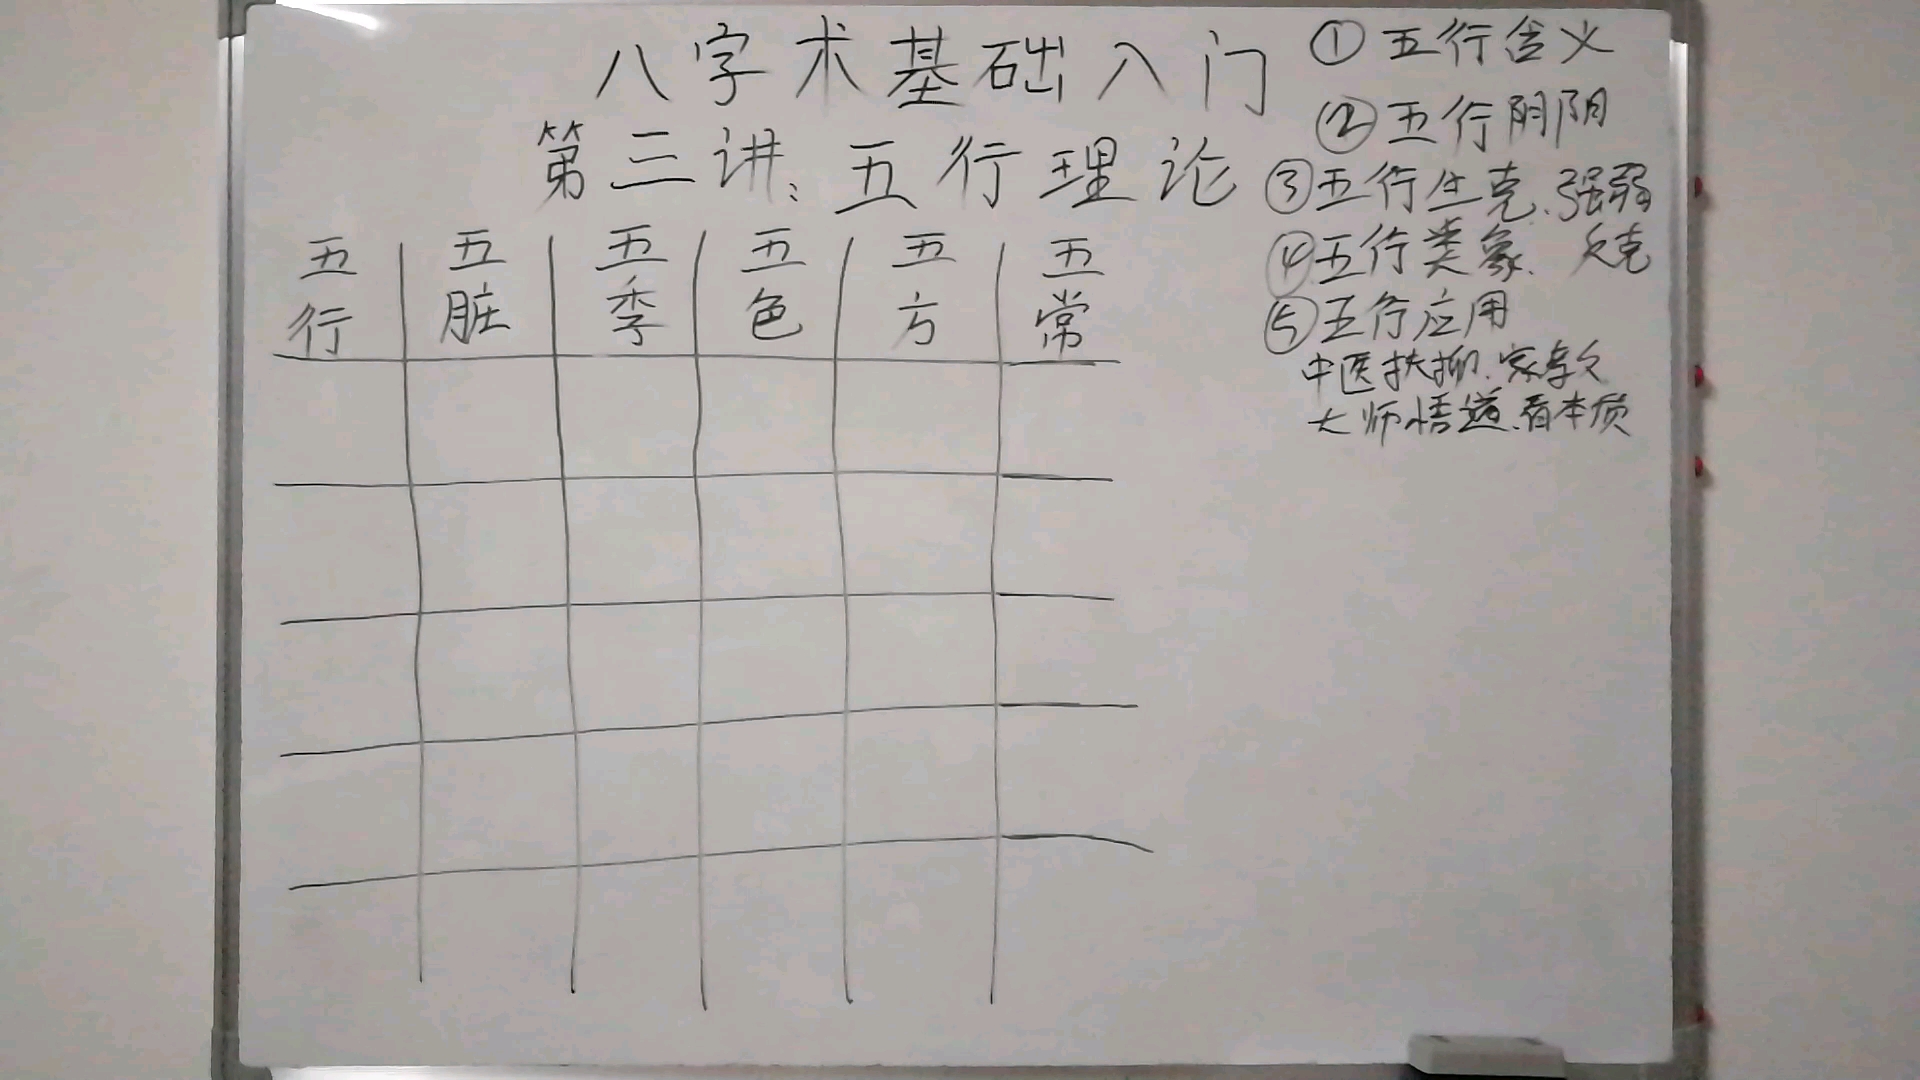 八字术基础入门
第三讲：五行理论
五行 五脏 五季 五色 五方 五常
① 五行含义
② 五行阴阳
③ 五行生克、强弱
④ 五行类象、反克
⑤ 五行应用
中医扶抑、家孝文
大师悟道、看本质